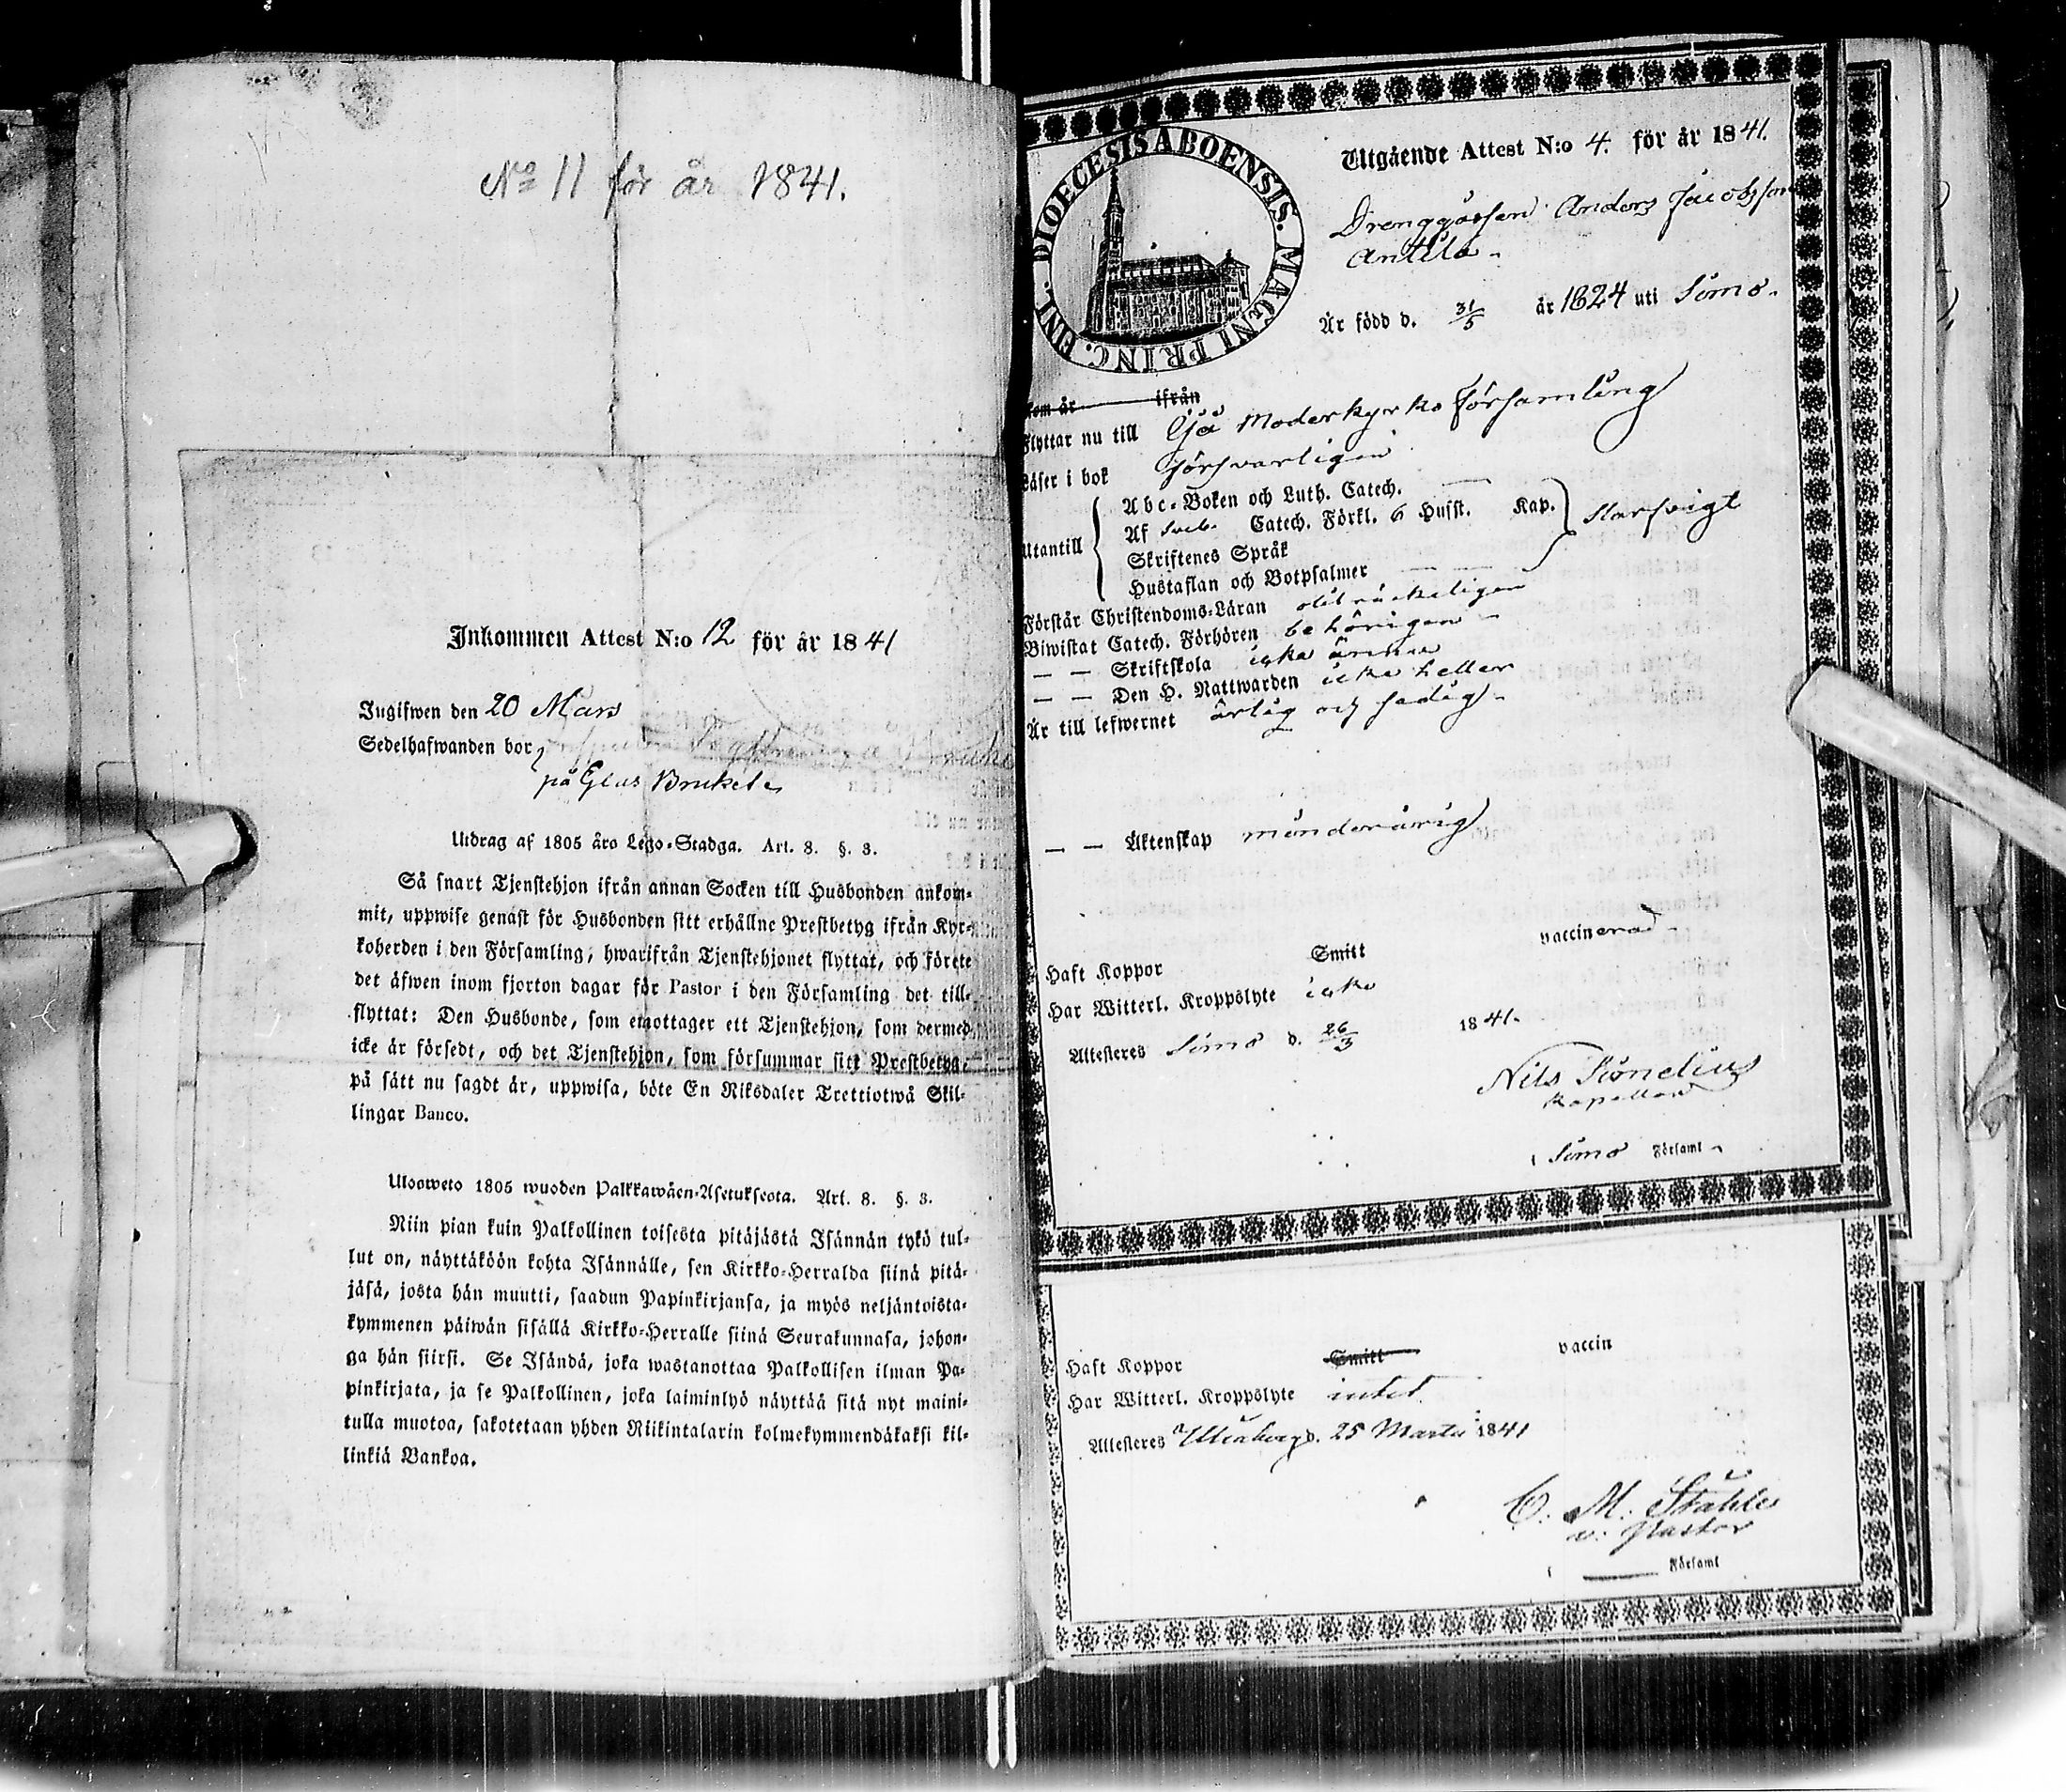 No 11 för år 1841.
Inkommen Attest N:o 12 för år 1841
Ingifwen den 20 Mars
Sedelhafwanden bor
på Glas Bruket
Utdrag af 1805 års Lego-Stadga. Art. 8. §. 3.
Så snart Tjenstehjon ifrån annan Socken till Husbonden ankom-
mit, uppwise genast för Husbonden sitt erhållne Prestbetyg ifrån Kyr-
koherden i den Församling, hwarifrån Tjenstehjonet flyttat, och förete
det äfwen inom fjorton dagar för Pastor i den Församling det till-
flyttat: Den Husbonde, som emottager ett Tjenstehjon, som dermed
icke är försedt, och det Tjenstehjon, som försummar sitt Prestbetyg,
på sätt nu sagdt är, uppwisa, böte En Riksdaler Trettiotwå Skil-
lingar Banco.
Ulosweto 1805 wuoden Palkkawäen-Asetuksesta. Art. 8. §. 3.
Niin pian kuin Palkollinen toisesta pitäjästä Isännän tykö tul-
lut on, näyttäköön kohta Isännälle, sen Kirkko-Herralda siinä pitä-
jäsä, josta hän muutti, saadun Papinkirjansa, ja myös neljäntoista-
kymmenen päiwän sisällä Kirkko-Herralle siinä Seurakunnasa, johon-
ga hän siirsi. Se Isändä, joka wastanottaa Palkollisen ilman Pa-
pinkirjata, ja se Palkollinen, joka laiminlyö näyttää sitä nyt maini-
tulla muotoa, sakotetaan yhden Riikintalarin kolmekymmendäkaksi kil-
linkiä Bankoa.
DIOECESIS ABOENSIS. MAGNI PRINC. FINL.
Utgående Attest N:o 4. för år 1841.
Drenggåssen Anders Jacobsson
Anttila
Är född d. 31/5 år 1824 uti Somo.
kom år ifrån
Flyttar nu till Moderkyrko Församling
Läser i bok försvarligen
Utantill
Abc-Boken och Luth. Catech.
Af Sveb. Catech. Förkl. 6 Husst. Kap.
Skriftenes Språk
Hustaflan och Botpsalmer
Förstår Christendoms-Läran otilräckeligen
Biwistat Catech. Förhören behörigen
— — Skriftskola icke ännu
— — Den H. Nattwarden icke heller
Är till lefwernet ärlig och sedig
— — Äktenskap minderårig
Haft Koppor Smitt vaccinerad
Har Witterl. Kroppslyte icke
Attesteres Somo d. 26/3 1841.
Nils
Kapellan
i Somo Församl
Haft Koppor Smitt vaccin
Har Witterl. Kroppslyte intet
Attesteres d. 25 Martii 1841
C. M. Ståhle
v. Pastor
i Församl